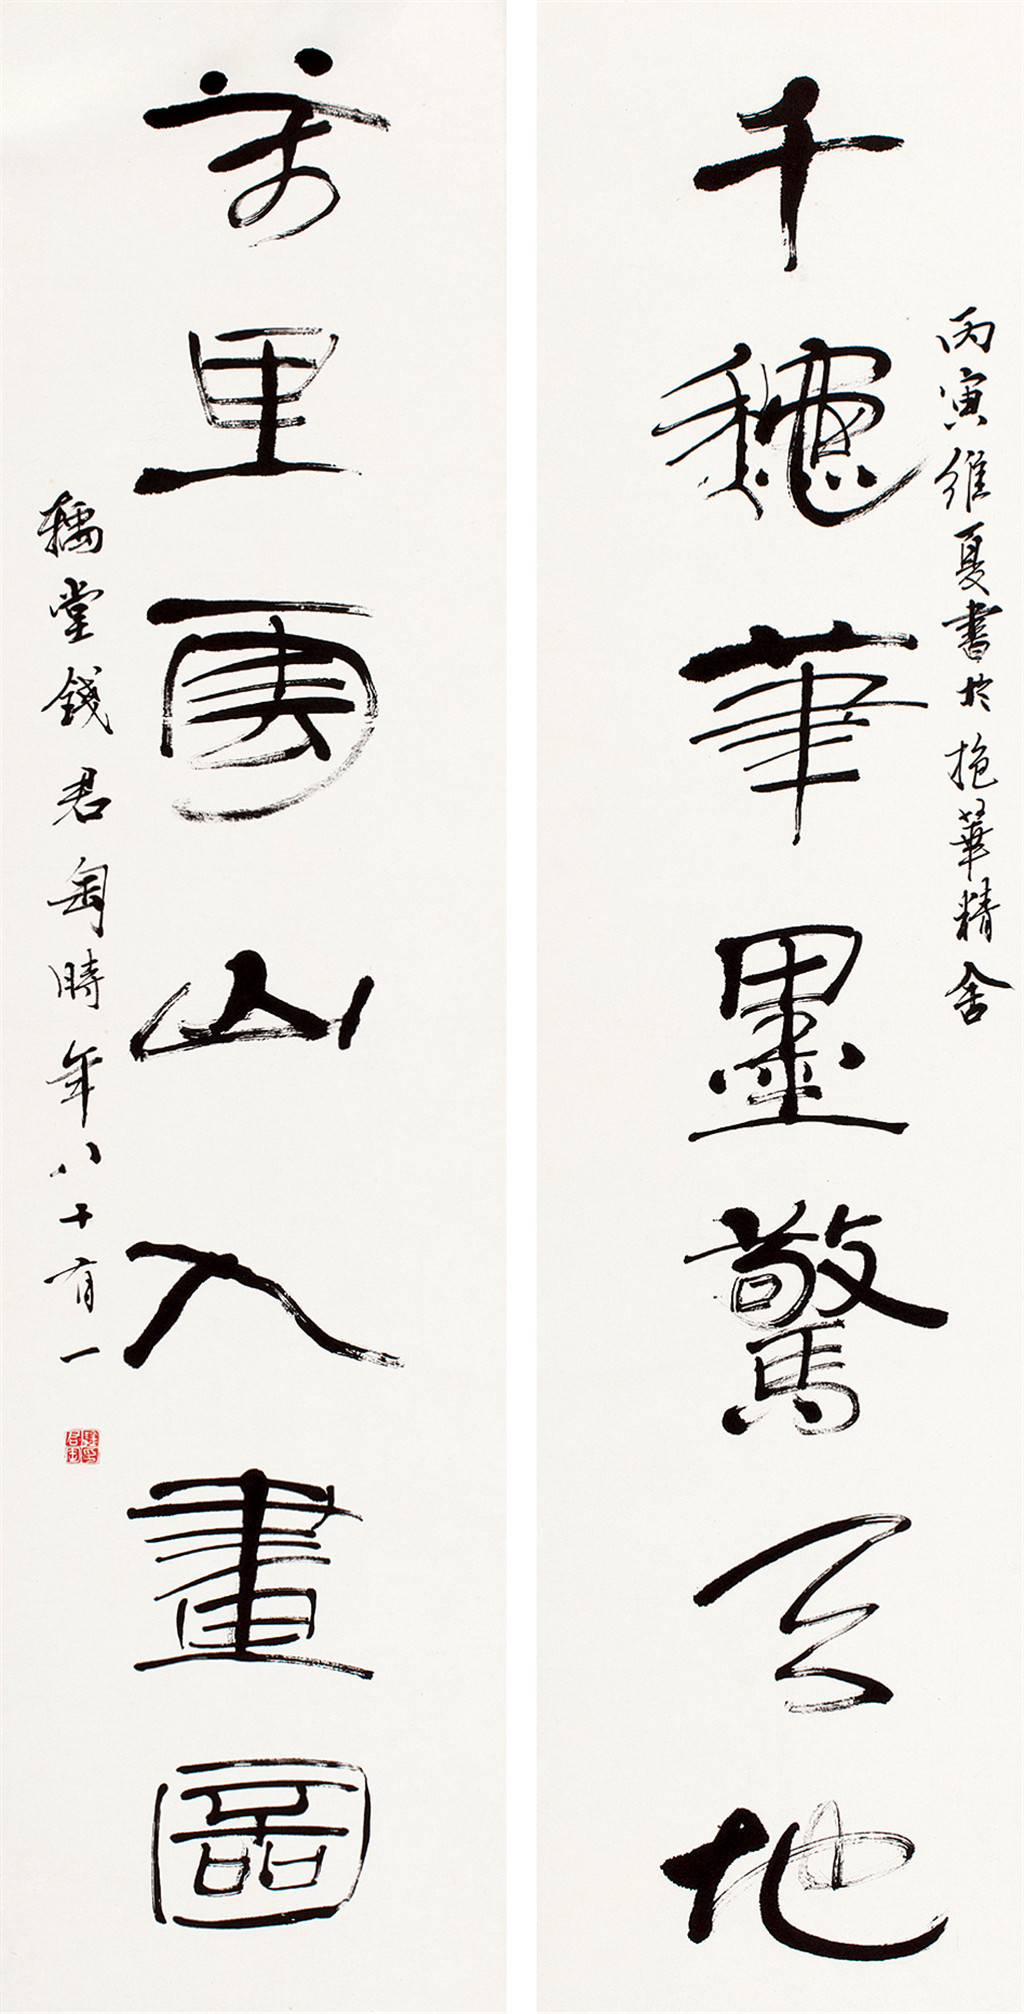 千龝筆墨驚天地
丙寅維夏書於抱華精舍
萬里雲山入畫圖
豫堂錢君匋時年八十有一